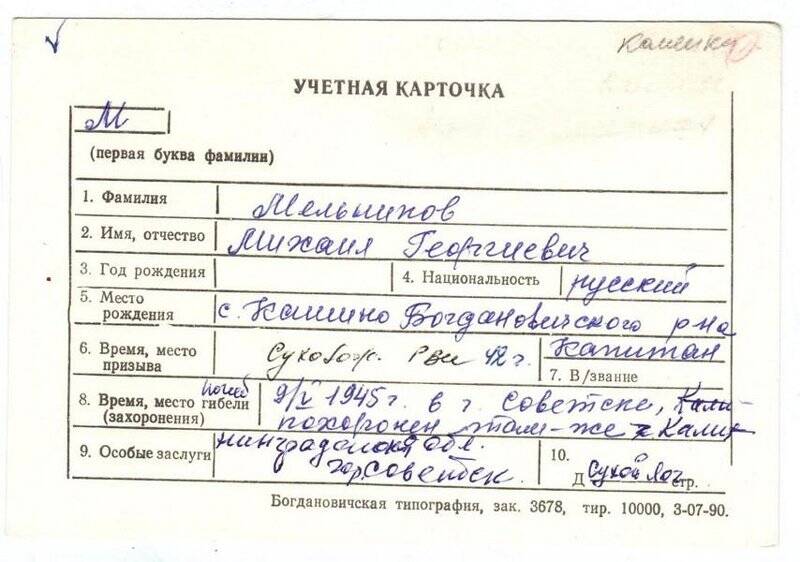 Кашино
УЧЕТНАЯ КАРТОЧКА
М
(первая буква фамилии)
1. Фамилия Мельников
2. Имя, отчество Михаил Георгиевич
3. Год рождения 4. Национальность русский
5. Место рождения с. Кашино Богдановичского р-на
6. Время, место призыва Сухолож. РВК 42 г. Капитан
7. В/звание
8. Время, место гибели (захоронения) погиб 9/V 1945 г. в г. Советске,
похоронен там-же
9. Особые заслуги нинградская обл.
гор. Советск.
10.
Д Сухой Лог стр.
Богдановичская типография, зак. 3678, тир. 10000, 3-07-90.